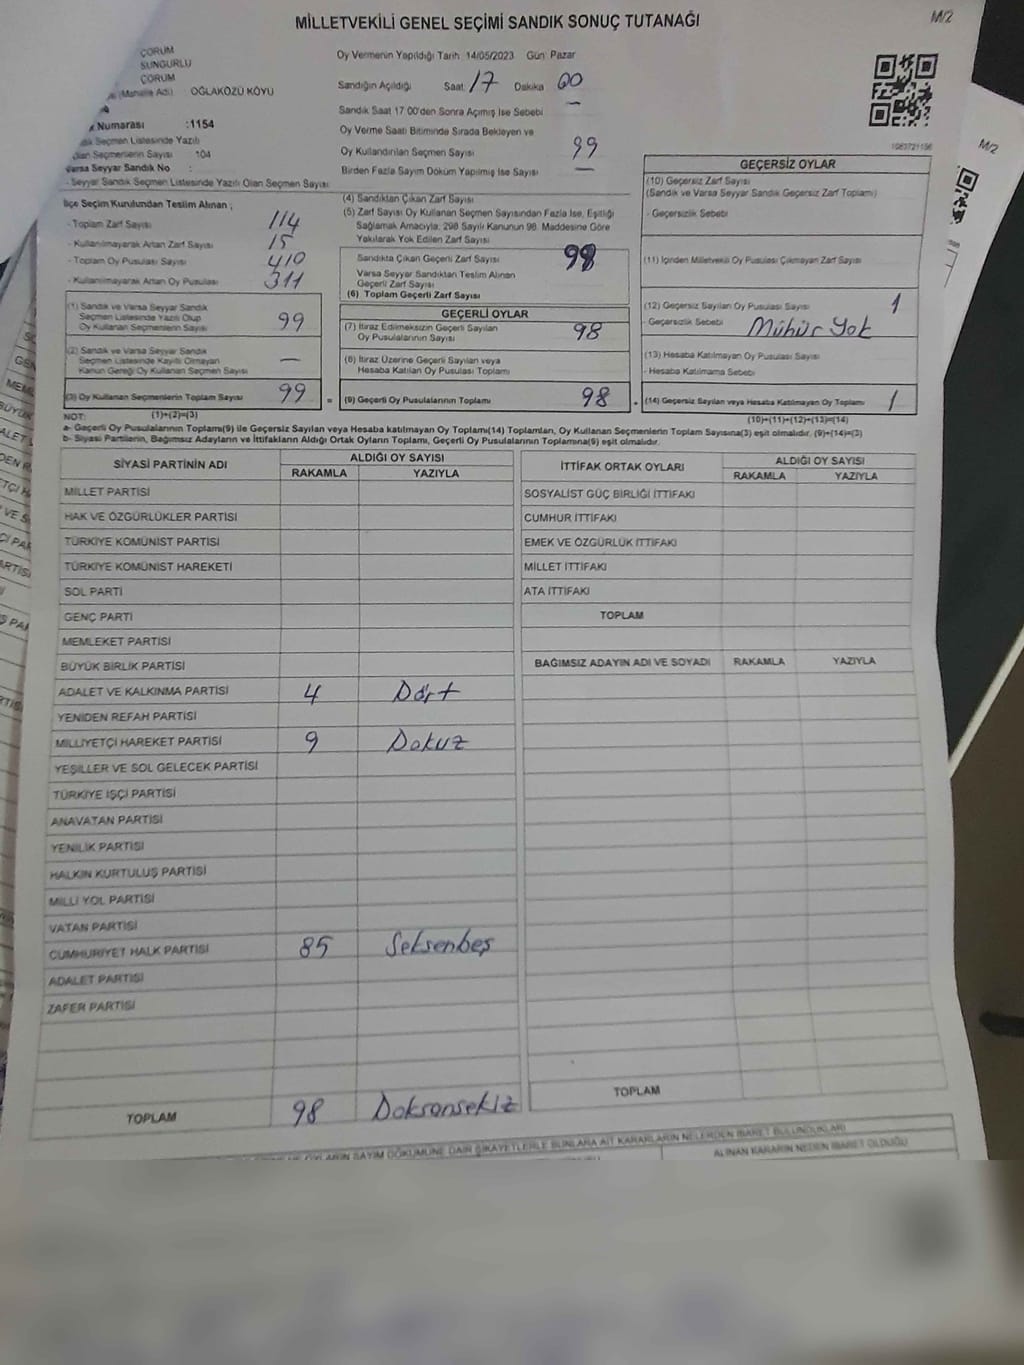 MİLLETVEKİLİ GENEL SEÇİMİ SANDIK SONUÇ TUTANAĞI
M/2
ÇORUM
SUNGURLU
ÇORUM
(Mahalle Adı) : OĞLAKÖZÜ KÖYÜ
Numarası :1154
Seçmen Listesinde Yazılı
Olan Seçmenlerin Sayısı : 104
Varsa Seyyar Sandık No :
- Seyyar Sandık Seçmen Listesinde Yazılı Olan Seçmen Sayısı
Oy Vermenin Yapıldığı Tarih :14/05/2023 Gün: Pazar
Sandığın Açıldığı Saat: 17 Dakika 00
Sandık Saat 17:00'den Sonra Açılmış İse Sebebi —
Oy Verme Saati Bitiminde Sırada Bekleyen ve
Oy Kullandırılan Seçmen Sayısı 99
Birden Fazla Sayım Döküm Yapılmış İse Sayısı —
1083721156
M/2
İlçe Seçim Kurulundan Teslim Alınan ;
- Toplam Zarf Sayısı 114
- Kullanılmayarak Artan Zarf Sayısı 15
- Toplam Oy Pusulası Sayısı 410
- Kullanılmayarak Artan Oy Pusulası 311
(1) Sandık ve Varsa Seyyar Sandık
Seçmen Listesinde Yazılı Olup
Oy Kullanan Seçmenlerin Sayısı 99
(2) Sandık ve Varsa Seyyar Sandık
Seçmen Listesinde Kayıtlı Olmayan
Kanun Gereği Oy Kullanan Seçmen Sayısı —
(3) Oy Kullanan Seçmenlerin Toplam Sayısı 99 =
(4) Sandıktan Çıkan Zarf Sayısı
(5) Zarf Sayısı Oy Kullanan Seçmen Sayısından Fazla İse, Eşitliği
Sağlamak Amacıyla; 298 Sayılı Kanunun 98. Maddesine Göre
Yakılarak Yok Edilen Zarf Sayısı
Sandıkta Çıkan Geçerli Zarf Sayısı 98
Varsa Seyyar Sandıktan Teslim Alınan
Geçerli Zarf Sayısı
(6) Toplam Geçerli Zarf Sayısı
GEÇERLİ OYLAR
(7) İtiraz Edilmeksizin Geçerli Sayılan
Oy Pusulalarının Sayısı 98
(8) İtiraz Üzerine Geçerli Sayılan veya
Hesaba Katılan Oy Pusulası Toplamı
(9) Geçerli Oy Pusulalarının Toplamı 98 +
GEÇERSİZ OYLAR
(10) Geçersiz Zarf Sayısı
(Sandık ve Varsa Seyyar Sandık Geçersiz Zarf Toplamı)
- Geçersizlik Sebebi
(11) İçinden Milletvekili Oy Pusulası Çıkmayan Zarf Sayısı
(12) Geçersiz Sayılan Oy Pusulası Sayısı 1
- Geçersizlik Sebebi Mühür Yok
(13) Hesaba Katılmayan Oy Pusulası Sayısı
- Hesaba Katılmama Sebebi
(14) Geçersiz Sayılan veya Hesaba Katılmayan Oy Pusulası Toplamı 1
NOT: (1)+(2)=(3) (10)+(11)+(12)+(13)=(14)
a- Geçerli Oy Pusulalarının Toplamı(9) ile Geçersiz Sayılan veya Hesaba katılmayan Oy Toplamı(14) Toplamları, Oy Kullanan Seçmenlerin Toplam Sayısına(3) eşit olmalıdır. (9)+(14)=(3)
b- Siyasi Partilerin, Bağımsız Adayların ve İttifakların Aldığı Ortak Oyların Toplamı, Geçerli Oy Pusulalarının Toplamına(9) eşit olmalıdır.
SİYASİ PARTİNİN ADI ALDIĞI OY SAYISI
RAKAMLA YAZIYLA
MİLLET PARTİSİ
HAK VE ÖZGÜRLÜKLER PARTİSİ
TÜRKİYE KOMÜNİST PARTİSİ
TÜRKİYE KOMÜNİST HAREKETİ
SOL PARTİ
GENÇ PARTİ
MEMLEKET PARTİSİ
BÜYÜK BİRLİK PARTİSİ
ADALET VE KALKINMA PARTİSİ 4 Dört
YENİDEN REFAH PARTİSİ
MİLLİYETÇİ HAREKET PARTİSİ 9 Dokuz
YEŞİLLER VE SOL GELECEK PARTİSİ
TÜRKİYE İŞÇİ PARTİSİ
ANAVATAN PARTİSİ
YENİLİK PARTİSİ
HALKIN KURTULUŞ PARTİSİ
MİLLİ YOL PARTİSİ
VATAN PARTİSİ
CUMHURİYET HALK PARTİSİ 85 Seksenbeş
ADALET PARTİSİ
ZAFER PARTİSİ
TOPLAM 98 Doksansekiz
İTTİFAK ORTAK OYLARI ALDIĞI OY SAYISI
RAKAMLA YAZIYLA
SOSYALİST GÜÇ BİRLİĞİ İTTİFAKI
CUMHUR İTTİFAKI
EMEK VE ÖZGÜRLÜK İTTİFAKI
MİLLET İTTİFAKI
ATA İTTİFAKI
TOPLAM
BAĞIMSIZ ADAYIN ADI VE SOYADI RAKAMLA YAZIYLA
TOPLAM
OYLARIN SAYIM DÖKÜMÜNE DAİR ŞİKAYETLERLE BUNLARA AİT KARARLARIN NELERDEN İBARET BULUNDUKLARI
ALINAN KARARIN NEDEN İBARET OLDUĞU